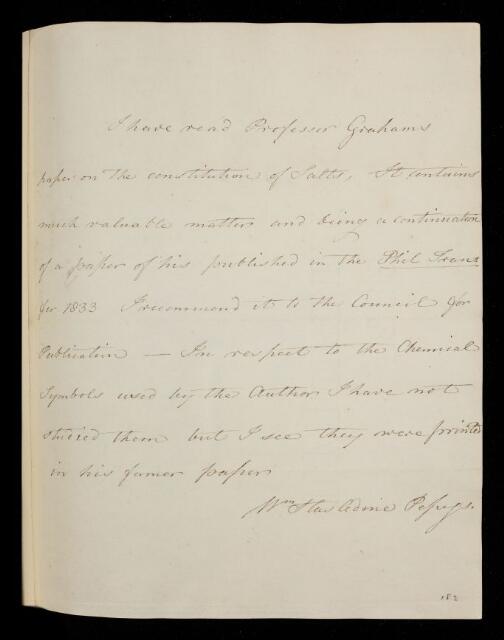 I have read Professor Grahams
paper on the constitution of Salts, It contains
much valuable matter and being a continuation
of a paper of his published in the Phil Trans
for 1833 I recommend it to the Council for
Publication — In respect to the Chemical
Symbols used by the Author I have not
studied them but I see they were printed
in his former paper
Wm Hasledine Pepys.
182